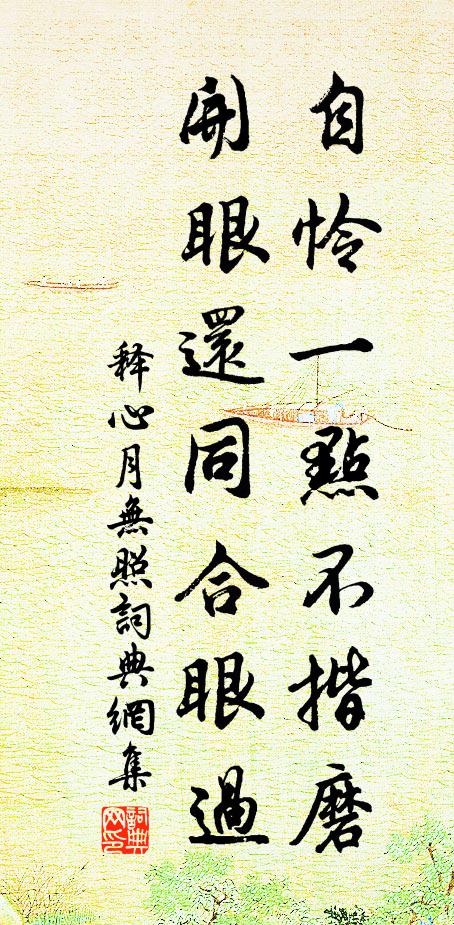 自怜一點不揩磨
開眼還同合眼過
释心月無照詞典網集
詞典
网印